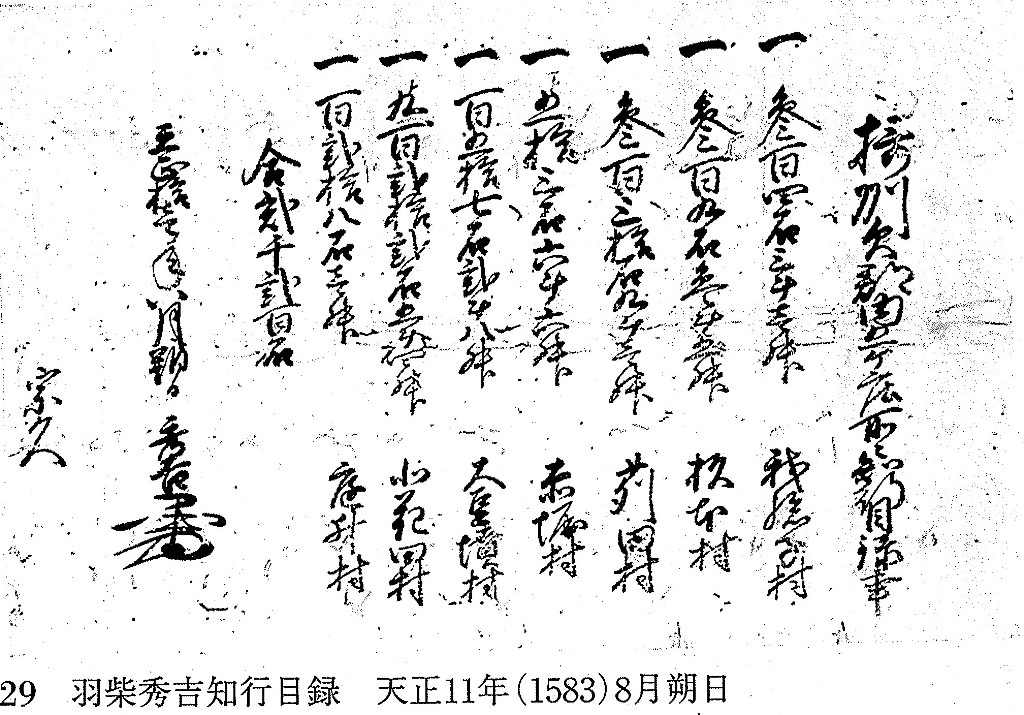 摂州欠郡内五ケ庄所々目録事
一 参百四石三斗壱升 我孫子村
一 参百九石参斗五升 杉本村
一 参百三拾石九斗壱升 苅田村
一 五拾三石六斗六升 堀村
一 百五拾七石弐斗八升 大豆塚村
一 九百弐拾弐石五斗升 北花田村
一 百弐拾八石壱升 庭井村
合弐千弐百石
天正拾壱年八月朔日 秀吉
宗久
29 羽柴秀吉知行目録 天正11年(1583)8月朔日